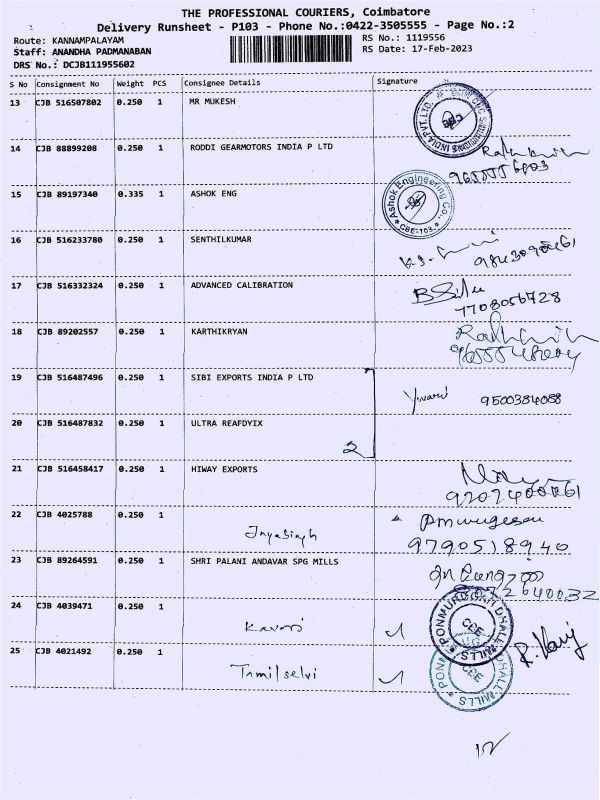 THE PROFESSIONAL COURIERS, Coimbatore
Delivery Runsheet - P103 - Phone No.:0422-3505555 - Page No.:2
Route: KANNAMPALAYAM RS No.: 1119556
Staff: ANANDHA PADMANABAN RS Date: 17-Feb-2023
DRS No.: DCJB111955602
S No Consignment No Weight PCS Consignee Details Signature
13 CJB 516507802 0.250 1 MR MUKESH
14 CJB 88899208 0.250 1 RODDI GEARMOTORS INDIA P LTD
15 CJB 89197340 0.335 1 ASHOK ENG
Ashok Engineering Co., * CBE-103 *
16 CJB 516233780 0.250 1 SENTHILKUMAR
17 CJB 516332324 0.250 1 ADVANCED CALIBRATION
7708056728
18 CJB 89202557 0.250 1 KARTHIKRYAN
19 CJB 516487496 0.250 1 SIBI EXPORTS INDIA P LTD
9500384088
20 CJB 516487832 0.250 1 ULTRA REAFDYIX
2
21 CJB 516458417 0.250 1 HIWAY EXPORTS
22 CJB 4025788 0.250 1 Jayasingh
9790518940
23 CJB 89264591 0.250 1 SHRI PALANI ANDAVAR SPG MILLS
24 CJB 4039471 0.250 1
PONMURUGAN DHALL MILLS CBE
25 CJB 4021492 0.250 1 Tamilselvi
CBE
R. Kavi